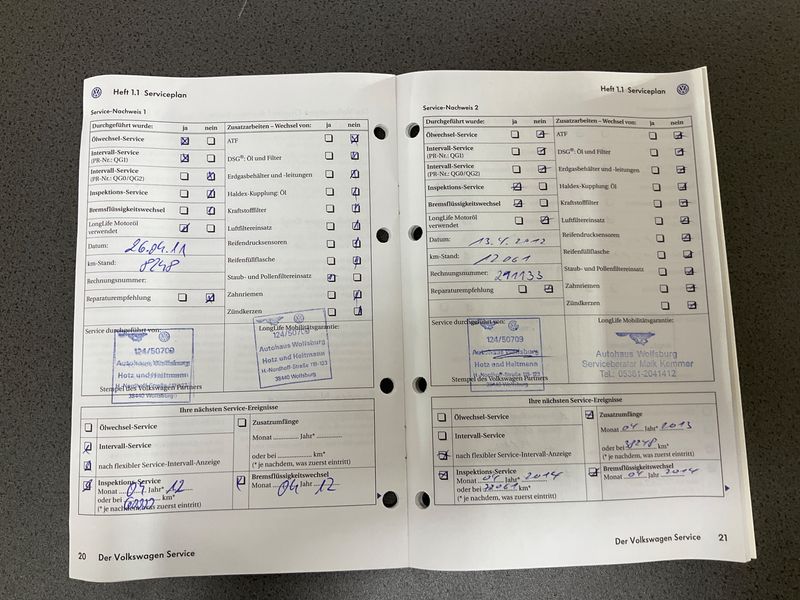 Heft 1.1 Serviceplan
Service-Nachweis 1
Durchgeführt wurde: ja nein Zusatzarbeiten – Wechsel von: ja nein
Ölwechsel-Service ATF
Intervall-Service
(PR-Nr.: QG1) DSG®: Öl und Filter
Intervall-Service
(PR-Nr.: QG0/QG2) Erdgasbehälter und -leitungen
Inspektions-Service Haldex-Kupplung: Öl
Bremsflüssigkeitswechsel Kraftstofffilter
LongLife Motoröl
verwendet Luftfiltereinsatz
Datum: 26.04.11 Reifendrucksensoren
km-Stand: 8248 Reifenfüllflasche
Rechnungsnummer: Staub- und Pollenfiltereinsatz
Reparaturempfehlung Zahnriemen
Zündkerzen
Service durchgeführt von: LongLife Mobilitätsgarantie:
124/50709
Autohaus Wolfsburg
Hotz und Heitmann
H.-Nordhoff-Straße 119-123
38440 Wolfsburg
124/50709
Autohaus Wolfsburg
Hotz und Heitmann
H.-Nordhoff-Straße 119-123
38440 Wolfsburg
Stempel des Volkswagen Partners
Ihre nächsten Service-Ereignisse
Ölwechsel-Service Zusatzumfänge
Intervall-Service Monat Jahr*
nach flexibler Service-Intervall-Anzeige oder bei km*
(* je nachdem, was zuerst eintritt)
Inspektions-Service Bremsflüssigkeitswechsel
Monat 04 Jahr* 12 Monat 04 Jahr 12
oder bei km*
(* je nachdem, was zuerst eintritt)
20 Der Volkswagen Service
Heft 1.1 Serviceplan
Service-Nachweis 2
Durchgeführt wurde: ja nein Zusatzarbeiten – Wechsel von: ja nein
Ölwechsel-Service ATF
Intervall-Service
(PR-Nr.: QG1) DSG®: Öl und Filter
Intervall-Service
(PR-Nr.: QG0/QG2) Erdgasbehälter und -leitungen
Inspektions-Service Haldex-Kupplung: Öl
Bremsflüssigkeitswechsel Kraftstofffilter
LongLife Motoröl
verwendet Luftfiltereinsatz
Datum: 13.4.2012 Reifendrucksensoren
km-Stand: 12061 Reifenfüllflasche
Rechnungsnummer: 291133 Staub- und Pollenfiltereinsatz
Reparaturempfehlung Zahnriemen
Zündkerzen
Service durchgeführt von: LongLife Mobilitätsgarantie:
124/50709
Autohaus Wolfsburg
Hotz und Heitmann
38440 Wolfsburg
Autohaus Wolfsburg
Serviceberater Maik Kemmer
Tel.: 05361-2041412
Stempel des Volkswagen Partners
Ihre nächsten Service-Ereignisse
Ölwechsel-Service Zusatzumfänge
Intervall-Service Monat 04 Jahr* 2013
nach flexibler Service-Intervall-Anzeige oder bei 38248 km*
(* je nachdem, was zuerst eintritt)
Inspektions-Service Bremsflüssigkeitswechsel
Monat 04 Jahr* 2014 Monat 04 Jahr 2014
oder bei km*
(* je nachdem, was zuerst eintritt)
Der Volkswagen Service 21